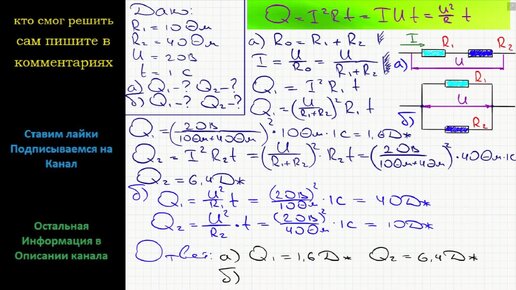 кто смог решить
сам пишите в
комментариях
Ставим лайки
Подписываемся на
Канал
Остальная
Информация в
Описании канала
Дано:
R₁ = 10 Ом
R₂ = 40 Ом
U = 20 В
t = 1 с
а) Q₁-? Q₂-?
б) Q₁-? Q₂-?
Q = I²Rt = IUt = U²/R t
а) R₀ = R₁ + R₂
I = U/R₀ = U/(R₁+R₂)
Q₁ = I²R₁t
Q₁ = (U/(R₁+R₂))² R₁ t
Q₁ = (20В/(10Ом+40Ом))² · 10Ом · 1с = 1,6 Дж
Q₂ = I²R₂t = (U/(R₁+R₂))² · R₂t = (20В/(10Ом+40Ом))² · 40Ом · 1с
Q₂ = 6,4 Дж
б) Q₁ = U²/R₁ t = (20В)²/10Ом · 1с = 40 Дж
Q₂ = U²/R₂ · t = (20В)²/40Ом · 1с = 10 Дж
Ответ: а) Q₁ = 1,6 Дж Q₂ = 6,4 Дж
б)
I R₁ R₂
а) U
R₁
U
б) R₂